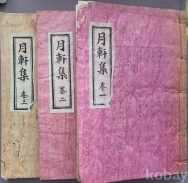 月軒集 卷一
月軒集 卷二
月軒集 卷三
kobay